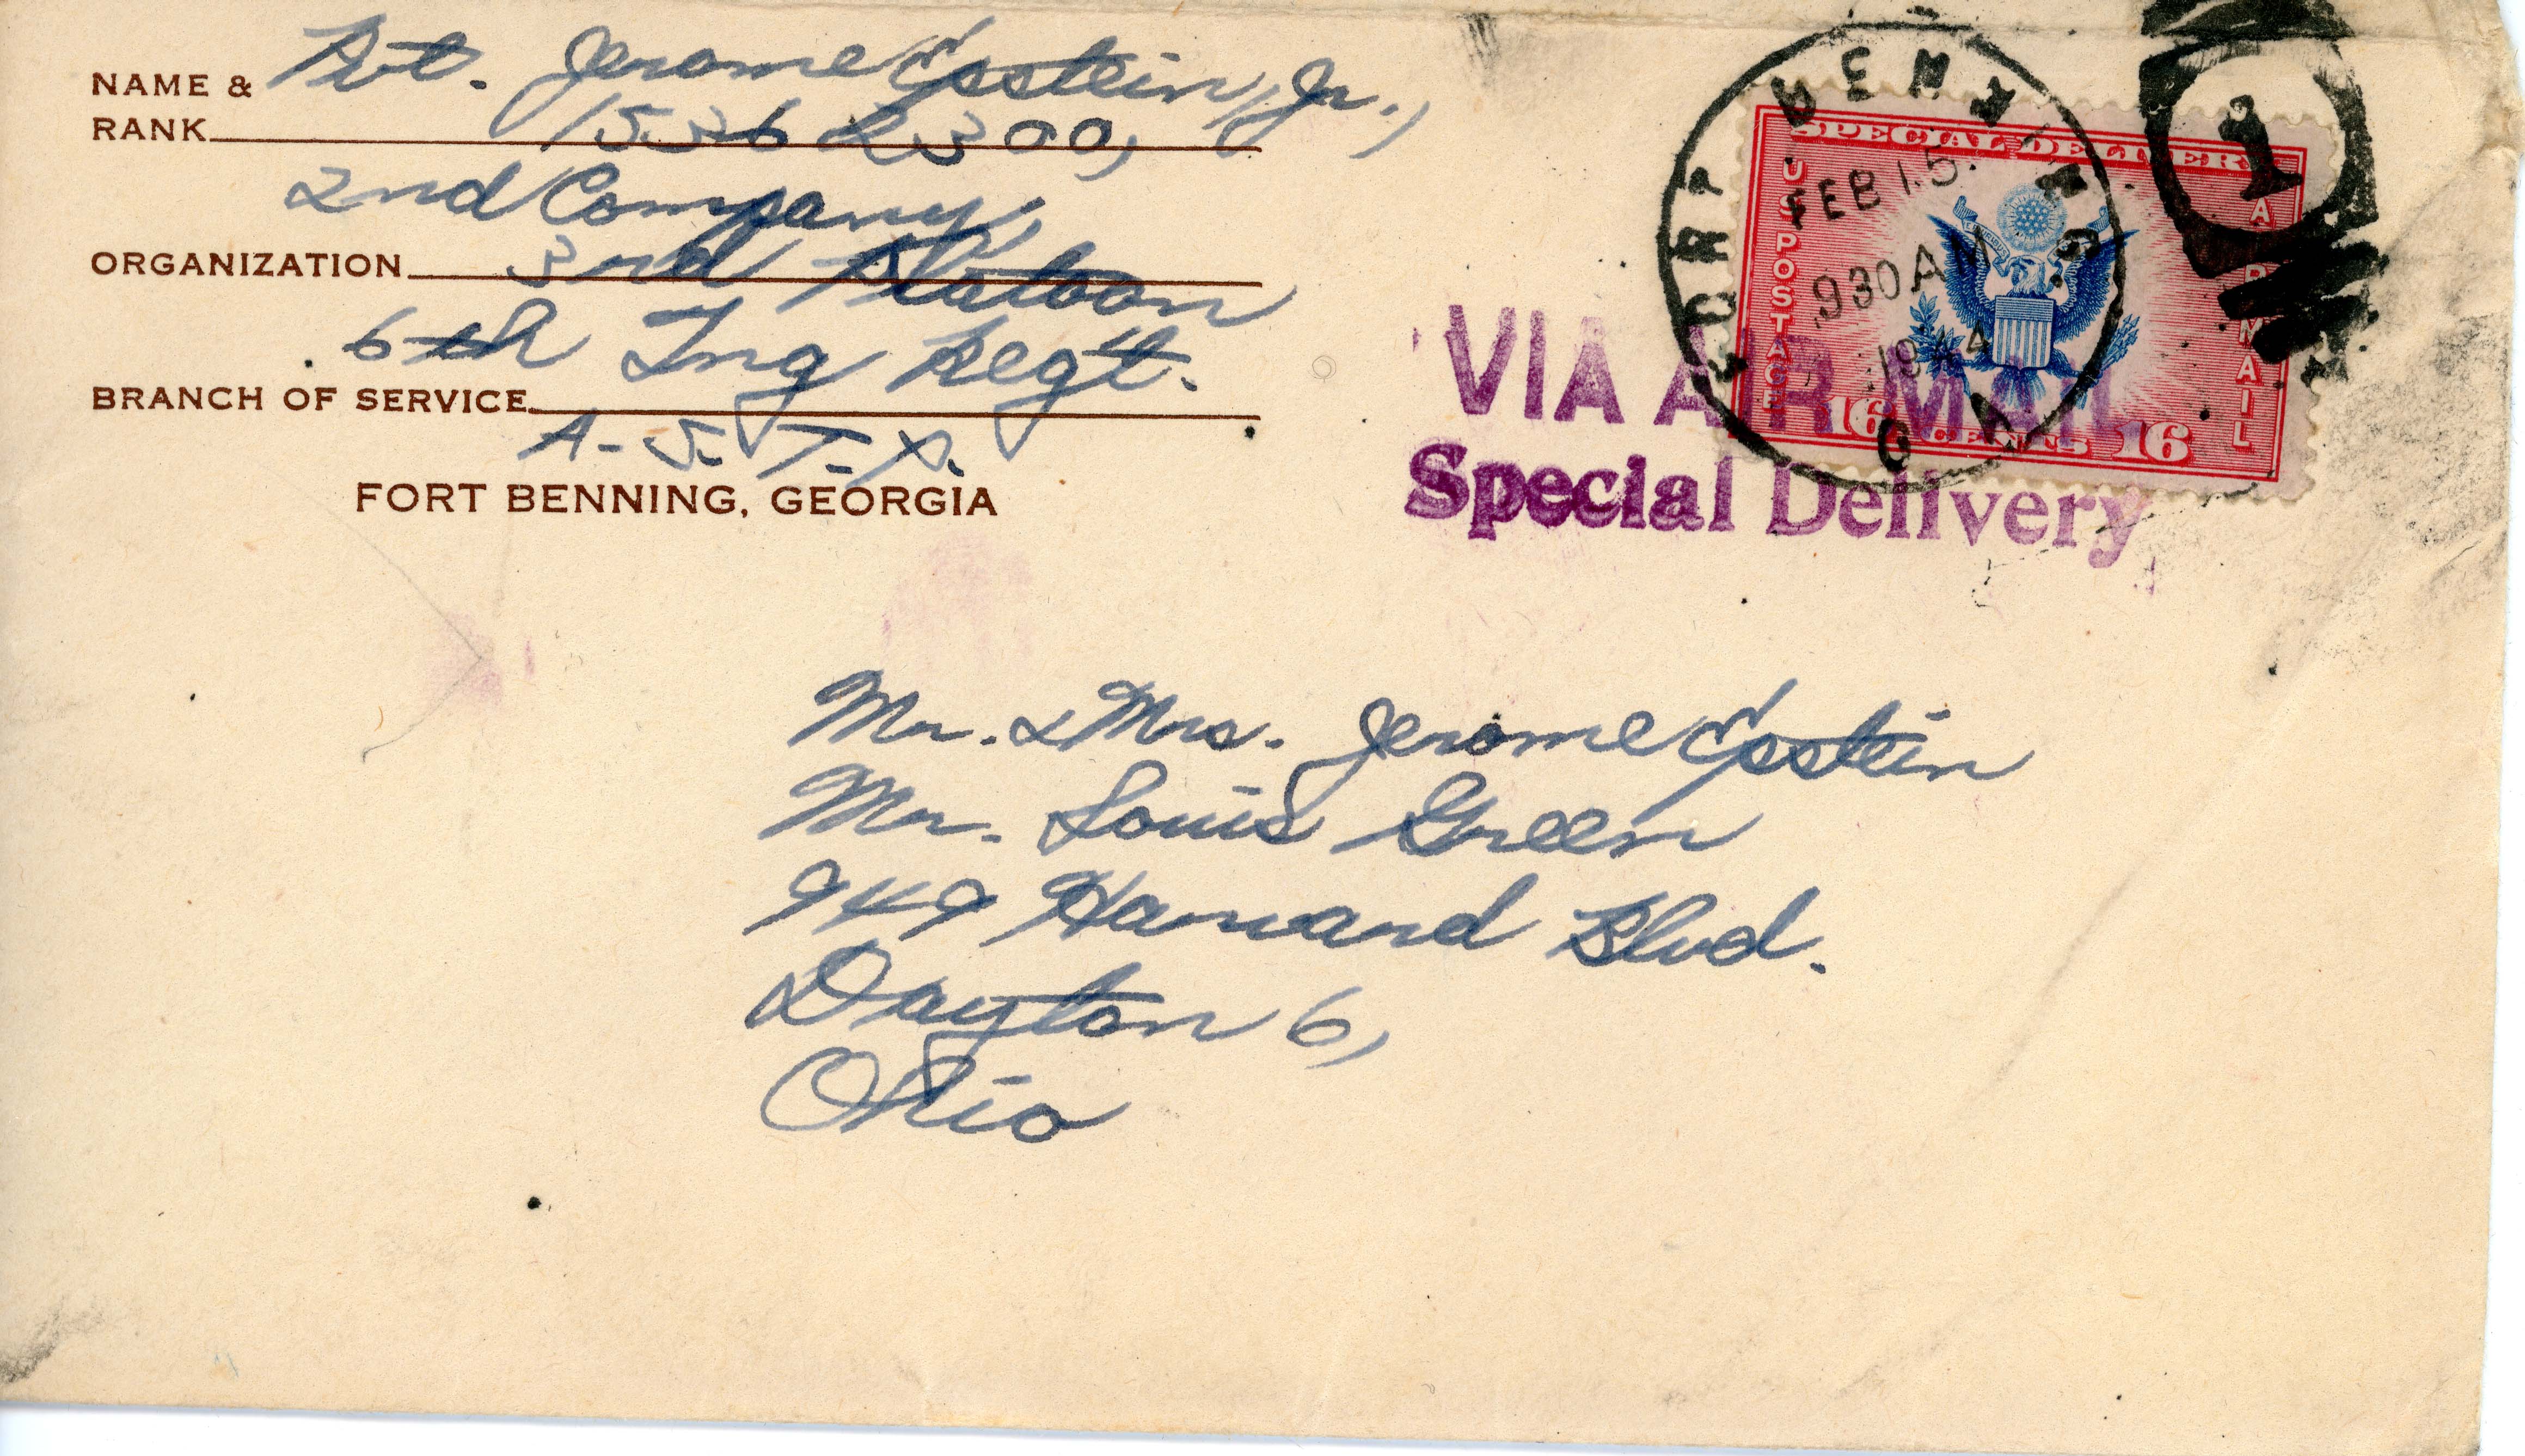 NAME & Pvt. Jerome Epstein, Jr.,
RANK 15362300,
2nd Company,
ORGANIZATION 3rd Platoon
6th Tng Reg't.
BRANCH OF SERVICE
A.S.T.P.
FORT BENNING, GEORGIA
FORT BENNING
GA
FEB 15
930 AM
1944
1
SPECIAL DELIVERY
U S POSTAGE
AIR MAIL
E PLURIBUS
16 CENTS 16
VIA AIR MAIL
Special Delivery
Mr. & Mrs. Jerome Epstein
Mr. Louis Green
949 Harvard Blvd.
Dayton 6,
Ohio